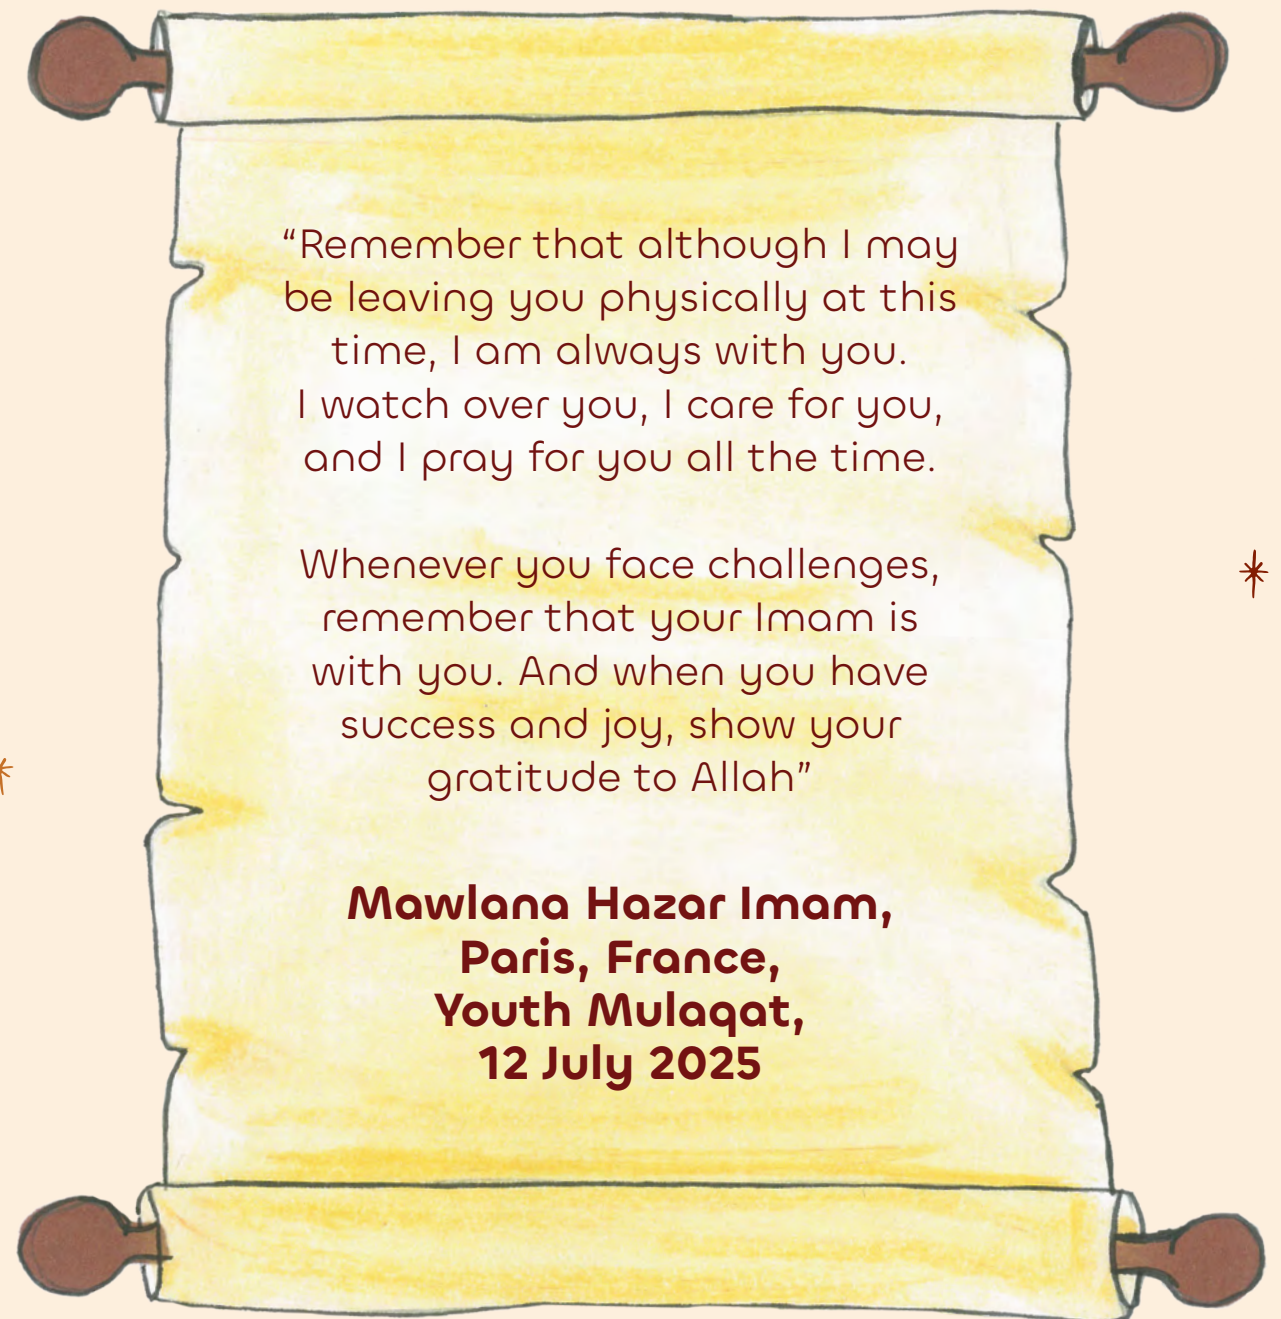 “Remember that although I may
be leaving you physically at this
time, I am always with you.
I watch over you, I care for you,
and I pray for you all the time.
Whenever you face challenges,
remember that your Imam is
with you. And when you have
success and joy, show your
gratitude to Allah”
Mawlana Hazar Imam,
Paris, France,
Youth Mulaqat,
12 July 2025